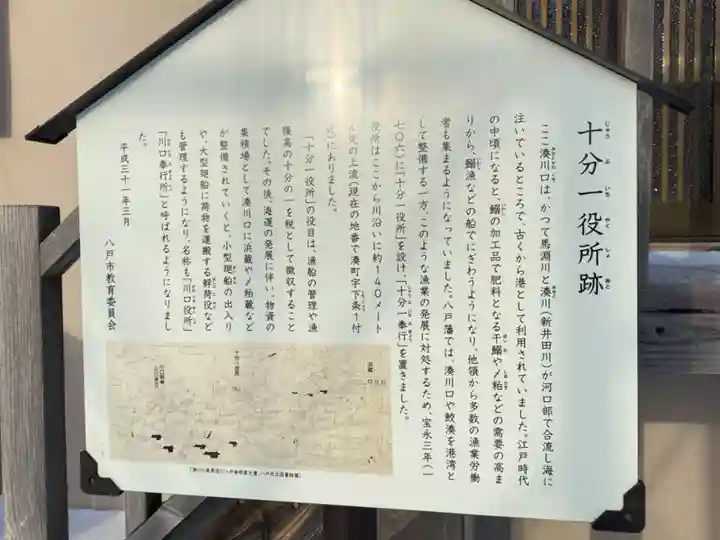 十分一役所跡
じゅう ぶ いち やく しょ あと
ここ湊川口は、かつて馬淵川と湊川(新井田川)が河口部で合流し海に
注いでいるところで、古くから港として利用されていました。江戸時代
の中頃になると、鰯の加工品で肥料となる干鰯や〆粕などの需要の高ま
りから、鰯漁などの船でにぎわうようになり、他領から多数の漁業労働
者も集まるようになっていました。八戸藩では、湊川口や鮫湊を港湾と
して整備する一方、このような漁業の発展に対処するため、宝永三年(一
七〇六)に「十分一役所」を設け、「十分一奉行」を置きました。
役所はここから川沿いに約140メート
ル先の上流(現在の地番で湊町字下条1付
近)にありました。
「十分一役所」の役目は、漁船の管理や漁
獲高の十分の一を税として徴収すること
でした。その後、海運の発展に伴い、物資の
集積場として湊川口に浜蔵や〆粕蔵など
が整備されていくと、小型廻船の出入り
や、大型廻船に荷物を運搬する艀荷役など
も管理するようになり、名称も「川口役所」
「川口奉行所」と呼ばれるようになりまし
た。
平成三十一年三月
八戸市教育委員会
十分一役所
浜蔵